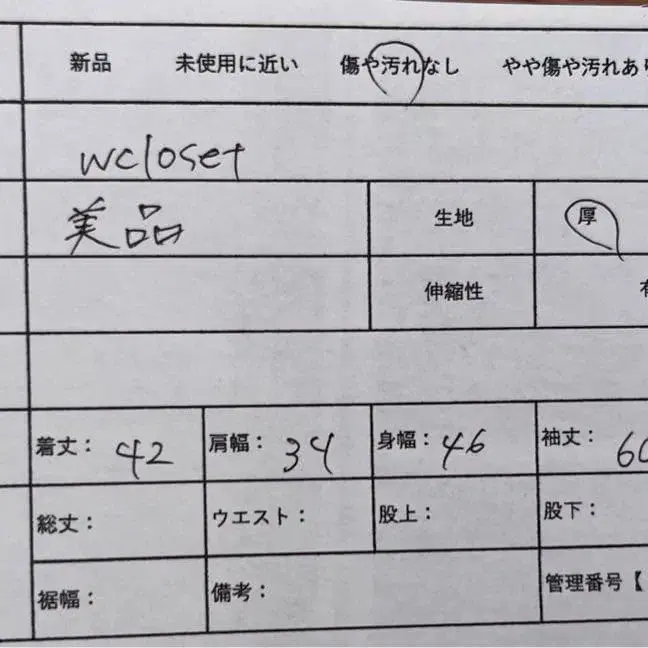 新品 未使用に近い 傷や汚れなし やや傷や汚れあり
wcloset
美品 生地 厚
伸縮性
着丈： 42 肩幅： 34 身幅： 46 袖丈： 60
総丈： ウエスト： 股上： 股下：
裾幅： 備考： 管理番号【